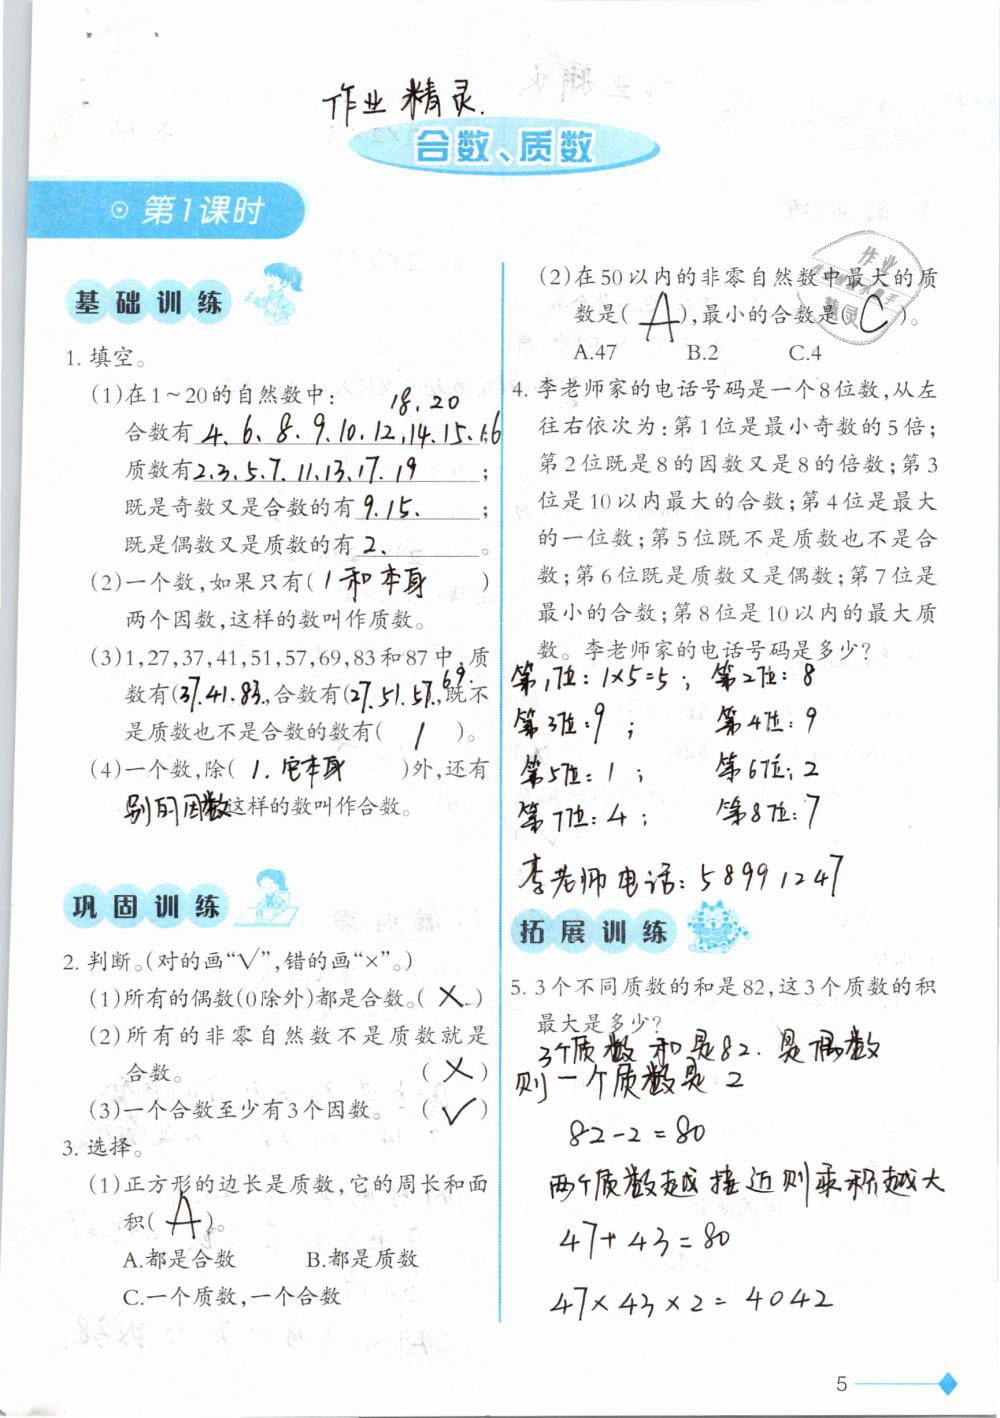 作业精灵.
合数、质数
第1课时
基础训练
1. 填空。
(1)在1~20的自然数中:
18、20
合数有 4、6、8、9、10、12、14、15、16
质数有2、3、5、7、11、13、17、19 ;
既是奇数又是合数的有 9、15、 ;
既是偶数又是质数的有 2、 。
(2)一个数,如果只有( 1和本身 )
两个因数,这样的数叫作质数。
(3)1,27,37,41,51,57,69,83和87中,质
数有(37、41、83),合数有(27、51、57、69、),既不
是质数也不是合数的数有( 1 )。
(4)一个数,除( 1、它本身 )外,还有
别的因数,这样的数叫作合数。
巩固训练
2. 判断。(对的画“√”,错的画“×”。)
(1)所有的偶数(0除外)都是合数。( × )
(2)所有的非零自然数不是质数就是
合数。 ( × )
(3)一个合数至少有3个因数。 ( √ )
3. 选择。
(1)正方形的边长是质数,它的周长和面
积( A )。
A.都是合数 B.都是质数
C.一个质数,一个合数
(2)在50以内的非零自然数中最大的质
数是( A ),最小的合数是( C )。
A.47 B.2 C.4
4. 李老师家的电话号码是一个8位数,从左
往右依次为:第1位是最小奇数的5倍;
第2位既是8的因数又是8的倍数;第3
位是10以内最大的合数;第4位是最大
的一位数;第5位既不是质数也不是合
数;第6位既是质数又是偶数;第7位是
最小的合数;第8位是10以内的最大质
数。李老师家的电话号码是多少?
第1位:1×5=5; 第2位:8
第3位:9; 第4位:9
第5位:1; 第6位:2
第7位:4; 第8位:7
李老师电话:58991247
拓展训练
5. 3个不同质数的和是82,这3个质数的积
最大是多少?
3个质数和是82.是偶数
则一个质数是2
82-2=80
两个质数越接近则乘积越大
47+43=80
47×43×2=4042
5